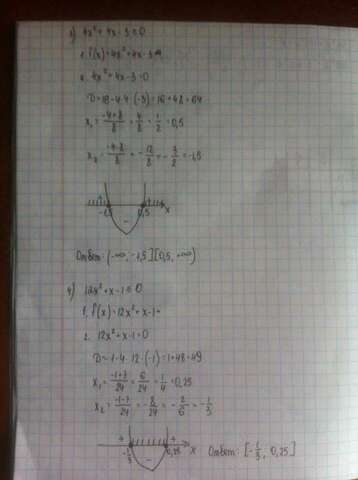 3) 4x² + 4x - 3 ≥ 0
1. f(x) = 4x² + 4x - 3
2. 4x² + 4x - 3 = 0
D = 16 - 4·4·(-3) = 16 + 48 = 64
x₁ = (-4+8)/8 = 4/8 = 1/2 = 0,5
x₂ = (-4-8)/8 = -12/8 = -3/2 = -1,5
+ - +
-1,5 0,5 x
Ответ: (-∞, -1,5][0,5, +∞)
4) 12x² + x - 1 ≤ 0
1. f(x) = 12x² + x - 1
2. 12x² + x - 1 = 0
D = 1 - 4·12·(-1) = 1 + 48 = 49
x₁ = (-1+7)/24 = 6/24 = 1/4 = 0,25
x₂ = (-1-7)/24 = -8/24 = -2/6 = -1/3
+ - +
-1/3 0,25 x Ответ: [-1/3, 0,25]